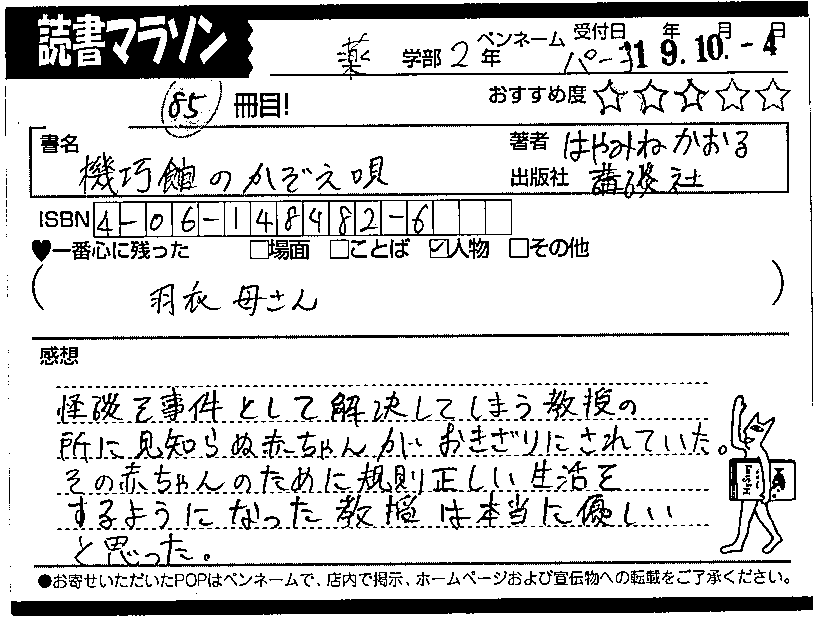 読書マラソン
薬 学部 2 年 ペンネーム パーコ 受付日 19.10.-4 年 月 日
85 冊目! おすすめ度 ☆☆☆☆☆
書名 機巧館のかぞえ唄
著者 はやみねかおる
出版社 講談社
ISBN 4-06-148482-6
♥一番心に残った □場面 □ことば ☑人物 □その他
(羽衣母さん)
感想
怪談を事件として解決してしまう教授の
所に見知らぬ赤ちゃんがおきざりにされていた。
その赤ちゃんのために規則正しい生活を
するようになった教授は本当に優しい
と思った。
●お寄せいただいたPOPはペンネームで、店内で掲示、ホームページおよび宣伝物への転載をご了承ください。